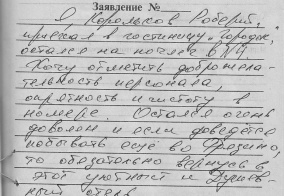 Заявление №
Я, Корольков Роберт,
приехал в гостиницу „Городж",
остался на ночлег в
Хочу отметить доброжела-
тельность персонала,
опрятность и чистоту в
номере. Остался очень
доволен и если доведётся
побывать ещё во Фрязино,
то обязательно вернусь в
этот уютный и душев-
ный отель